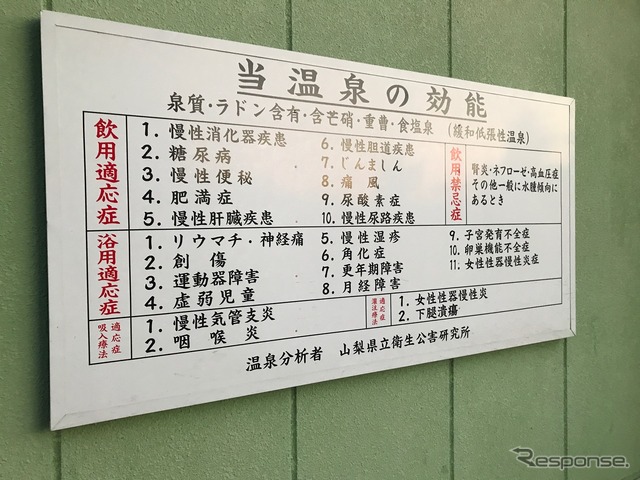 当温泉の効能
泉質・ラドン含有・含芒硝・重曹・食塩泉 (緩和低張性温泉)
飲用適応症
1. 慢性消化器疾患
2. 糖尿病
3. 慢性便秘
4. 肥満症
5. 慢性肝臓疾患
6. 慢性胆道疾患
7. じんましん
8. 痛風
9. 尿酸素症
10. 慢性尿路疾患
飲用禁忌症
腎炎・ネフローゼ・高血圧症
その他一般に水腫傾向に
あるとき
浴用適応症
1. リウマチ・神経痛
2. 創傷
3. 運動器障害
4. 虚弱児童
5. 慢性湿疹
6. 角化症
7. 更年期障害
8. 月経障害
9. 子宮発育不全症
10. 卵巣機能不全症
11. 女性性器慢性炎症
吸入療法
適応症
1. 慢性気管支炎
2. 咽喉炎
灌注療法
適応症
1. 女性性器慢性炎
2. 下腿潰瘍
温泉分析者 山梨県立衛生公害研究所
Response.